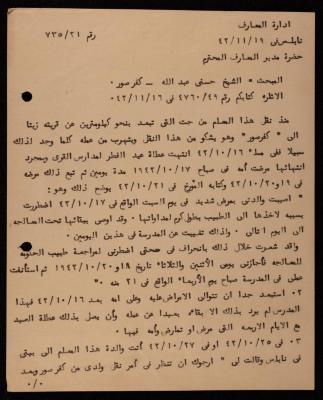 ادارة المعارف
نابلس في ٤٢/١١/١٩ رقم ٧٣٥/٢١
حضرة مدير المعارف المحترم
المبحث - الشيخ حسني عبد الله - كفر صور.
الاشارة كتابكم رقم ٤٧٦٠/٤٩ في ٤٢/١١/١٦
منذ نقل هذا المعلم من جت التي تبعد بنحو كيلومترين عن قريته زيتا
الى "كفر صور" وهو يشكو من هذا النقل ويتهرب من عمله كلما وجد لذلك
سبيلا ففي مساء ٤٢/١٠/١٦ انتهت عطلة عيد الفطر لمدارس القرى وبمجرد
انتهائها مرضت أمه في صباح ١٩٤٢/١٠/١٧ لمدة يومين ثم تبع ذلك مرضه
في ١٩و٤٢/١٠/٢٠ وكتابه المؤرخ في ٤٢/١٠/٢١ يوضح ذلك وهو:
" اصيبت والدتي بمرض شديد في يوم السبت الواقع في ٤٢/١٠/١٧ اضطررت
بسببه لاخذها الى الطبيب بطول كرم لمداواتها. وقد اوصى ببقائها تحت المعالجة
الى اليوم التالي. ولذلك تغيبت عن المدرسة في هذين اليومين.
وقد شعرت خلال ذلك بانحراف في صحتي اضطرني لمراجعة طبيب الحكومة
للمعالجة فأجازني يومي الاثنين والثلاثاء تاريخ ١٩و١٩٤٢/١٠/٢٠ ثم استأنفت
عملي في المدرسة صباح يوم الأربعاء الواقع في ٢١ منه "
٢٠ استبعد جدا ان تتوالى الامراض عليه وعلى امه بعد ٤٢/١٠/١٦ فهذا
المدرس لم يود بذلك الا بقاءه بعيدا عن عمله وأن يصل بذلك عطلة العيد
مع الايام الاربعة التي مرض او تمارض وأمه فيها.
٠٣ في ٤٢/١٠/٢٥ او في ٤٢/١٠/٢٧ أتت والدة هذا المعلم الى بيتي
في نابلس وقالت لي "ارجوك ان تنظر في أمر نقل ولدي من كفر صور وبعد
٠/٠